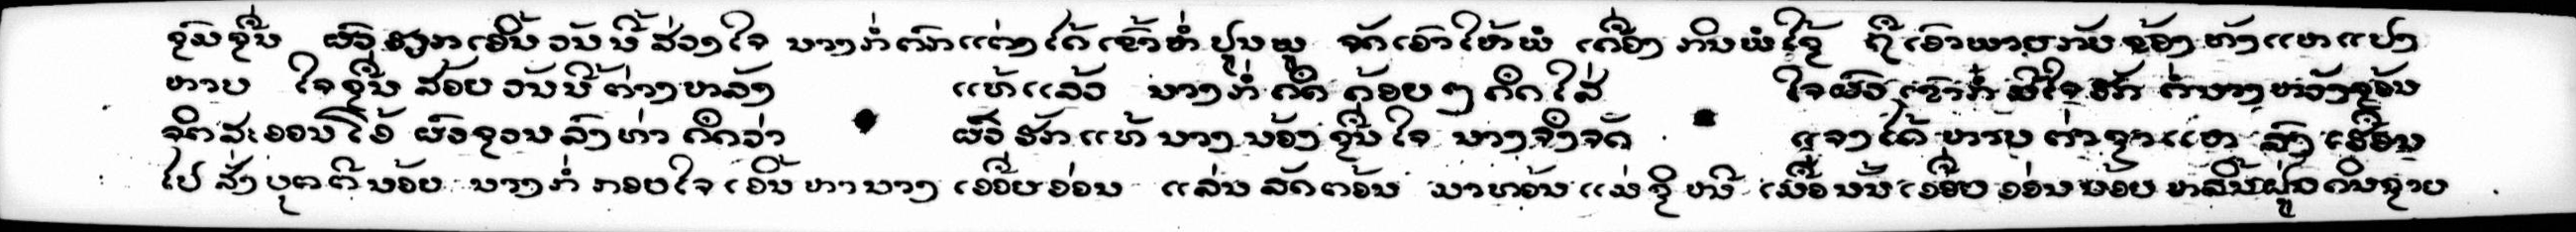 ຊຸມຊື່ນ ຜົວຮຽກເອີ້ນວັນນີ້ສ່ວງໃຈ ນາງກໍ່ຕົກແຕ່ງໄດ້ເຂົ້າຫໍ່ປູນພູ ຈັດເອົາໃຫ້ພໍ ເຄື່ອງກິນພໍໃຊ້ ຖືເອົາພາຍກັບຈ້ອງທັງແຫແປງ
ຫາບ ໃຈຊື່ນສ້ອຍວັນນີ້ຕ່າງຫລັງ ແທ້ແລ້ວ ນາງກໍ່ຄຶດຄ້ອຍໆຄຶດໃສ່ ໃຈຜົວເຂົາກໍ່ມີໃຈຮັກ ຄໍ່ນາງຫວັງຊ້ອນ
ຈິດສະອອນໂອ້ ຜົວຊວນລົງທ່າຄຶດວ່າ ຜົວຮັກແທ້ນາງນ້ອງຊື່ນໃຈ ນາງຈຶ່ງຈັດ ແຈງໄດ້ຫາບຕ່າຊາແຫ ລົງເຮືອນ
ໄປສັ່ງບຸຕຕີນ້ອຍ ນາງກໍ່ກອຍໃຈເອີ້ນຫານາງ ເອື້ອຍອ່ອນ ແລ່ນລັດຕອ້ນ ມາຫອ້ນແມ່ຊິໜີ ເມື່ອນັ້ນເອື້ອຍອ່ອນນ້ອຍຫລິ້ນຝູ່ວດິນຊາຍ